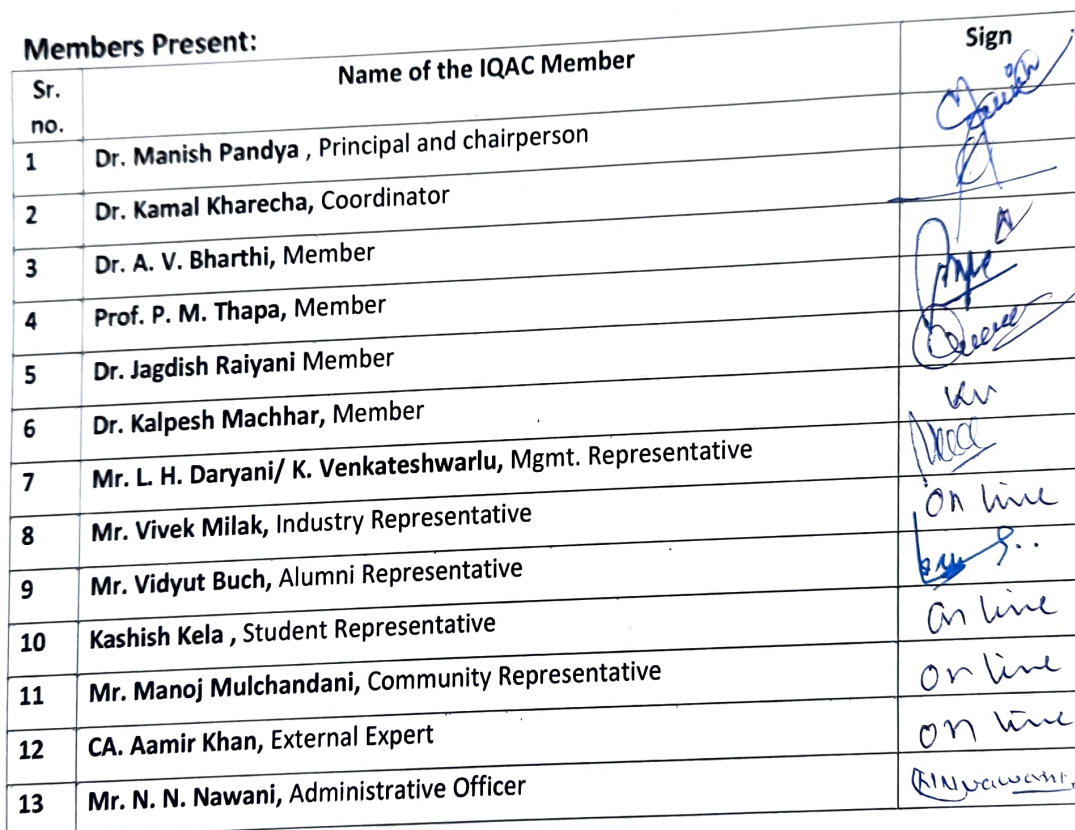 Members Present:
Sr. no. Name of the IQAC Member Sign
1 Dr. Manish Pandya , Principal and chairperson
2 Dr. Kamal Kharecha, Coordinator
3 Dr. A. V. Bharthi, Member
4 Prof. P. M. Thapa, Member
5 Dr. Jagdish Raiyani Member
6 Dr. Kalpesh Machhar, Member
7 Mr. L. H. Daryani/ K. Venkateshwarlu, Mgmt. Representative
8 Mr. Vivek Milak, Industry Representative On line
9 Mr. Vidyut Buch, Alumni Representative
10 Kashish Kela , Student Representative On line
11 Mr. Manoj Mulchandani, Community Representative On line
12 CA. Aamir Khan, External Expert On line
13 Mr. N. N. Nawani, Administrative Officer NNNawani